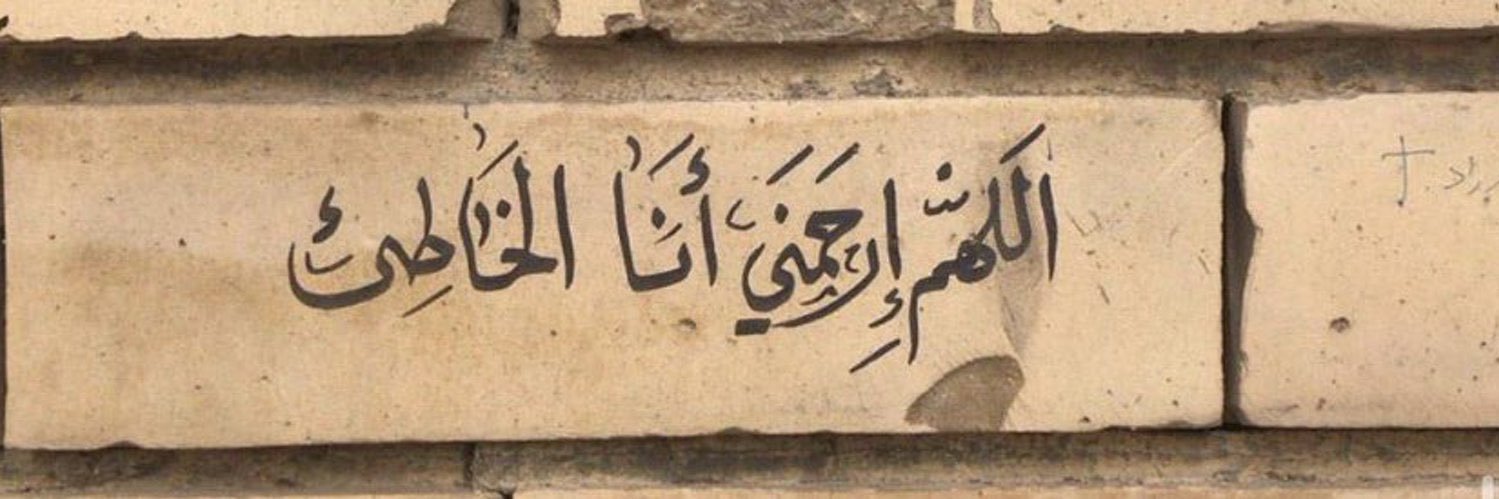 اَللّهُمَّ إِرحَمنَي أَنَا الخَاطِئ